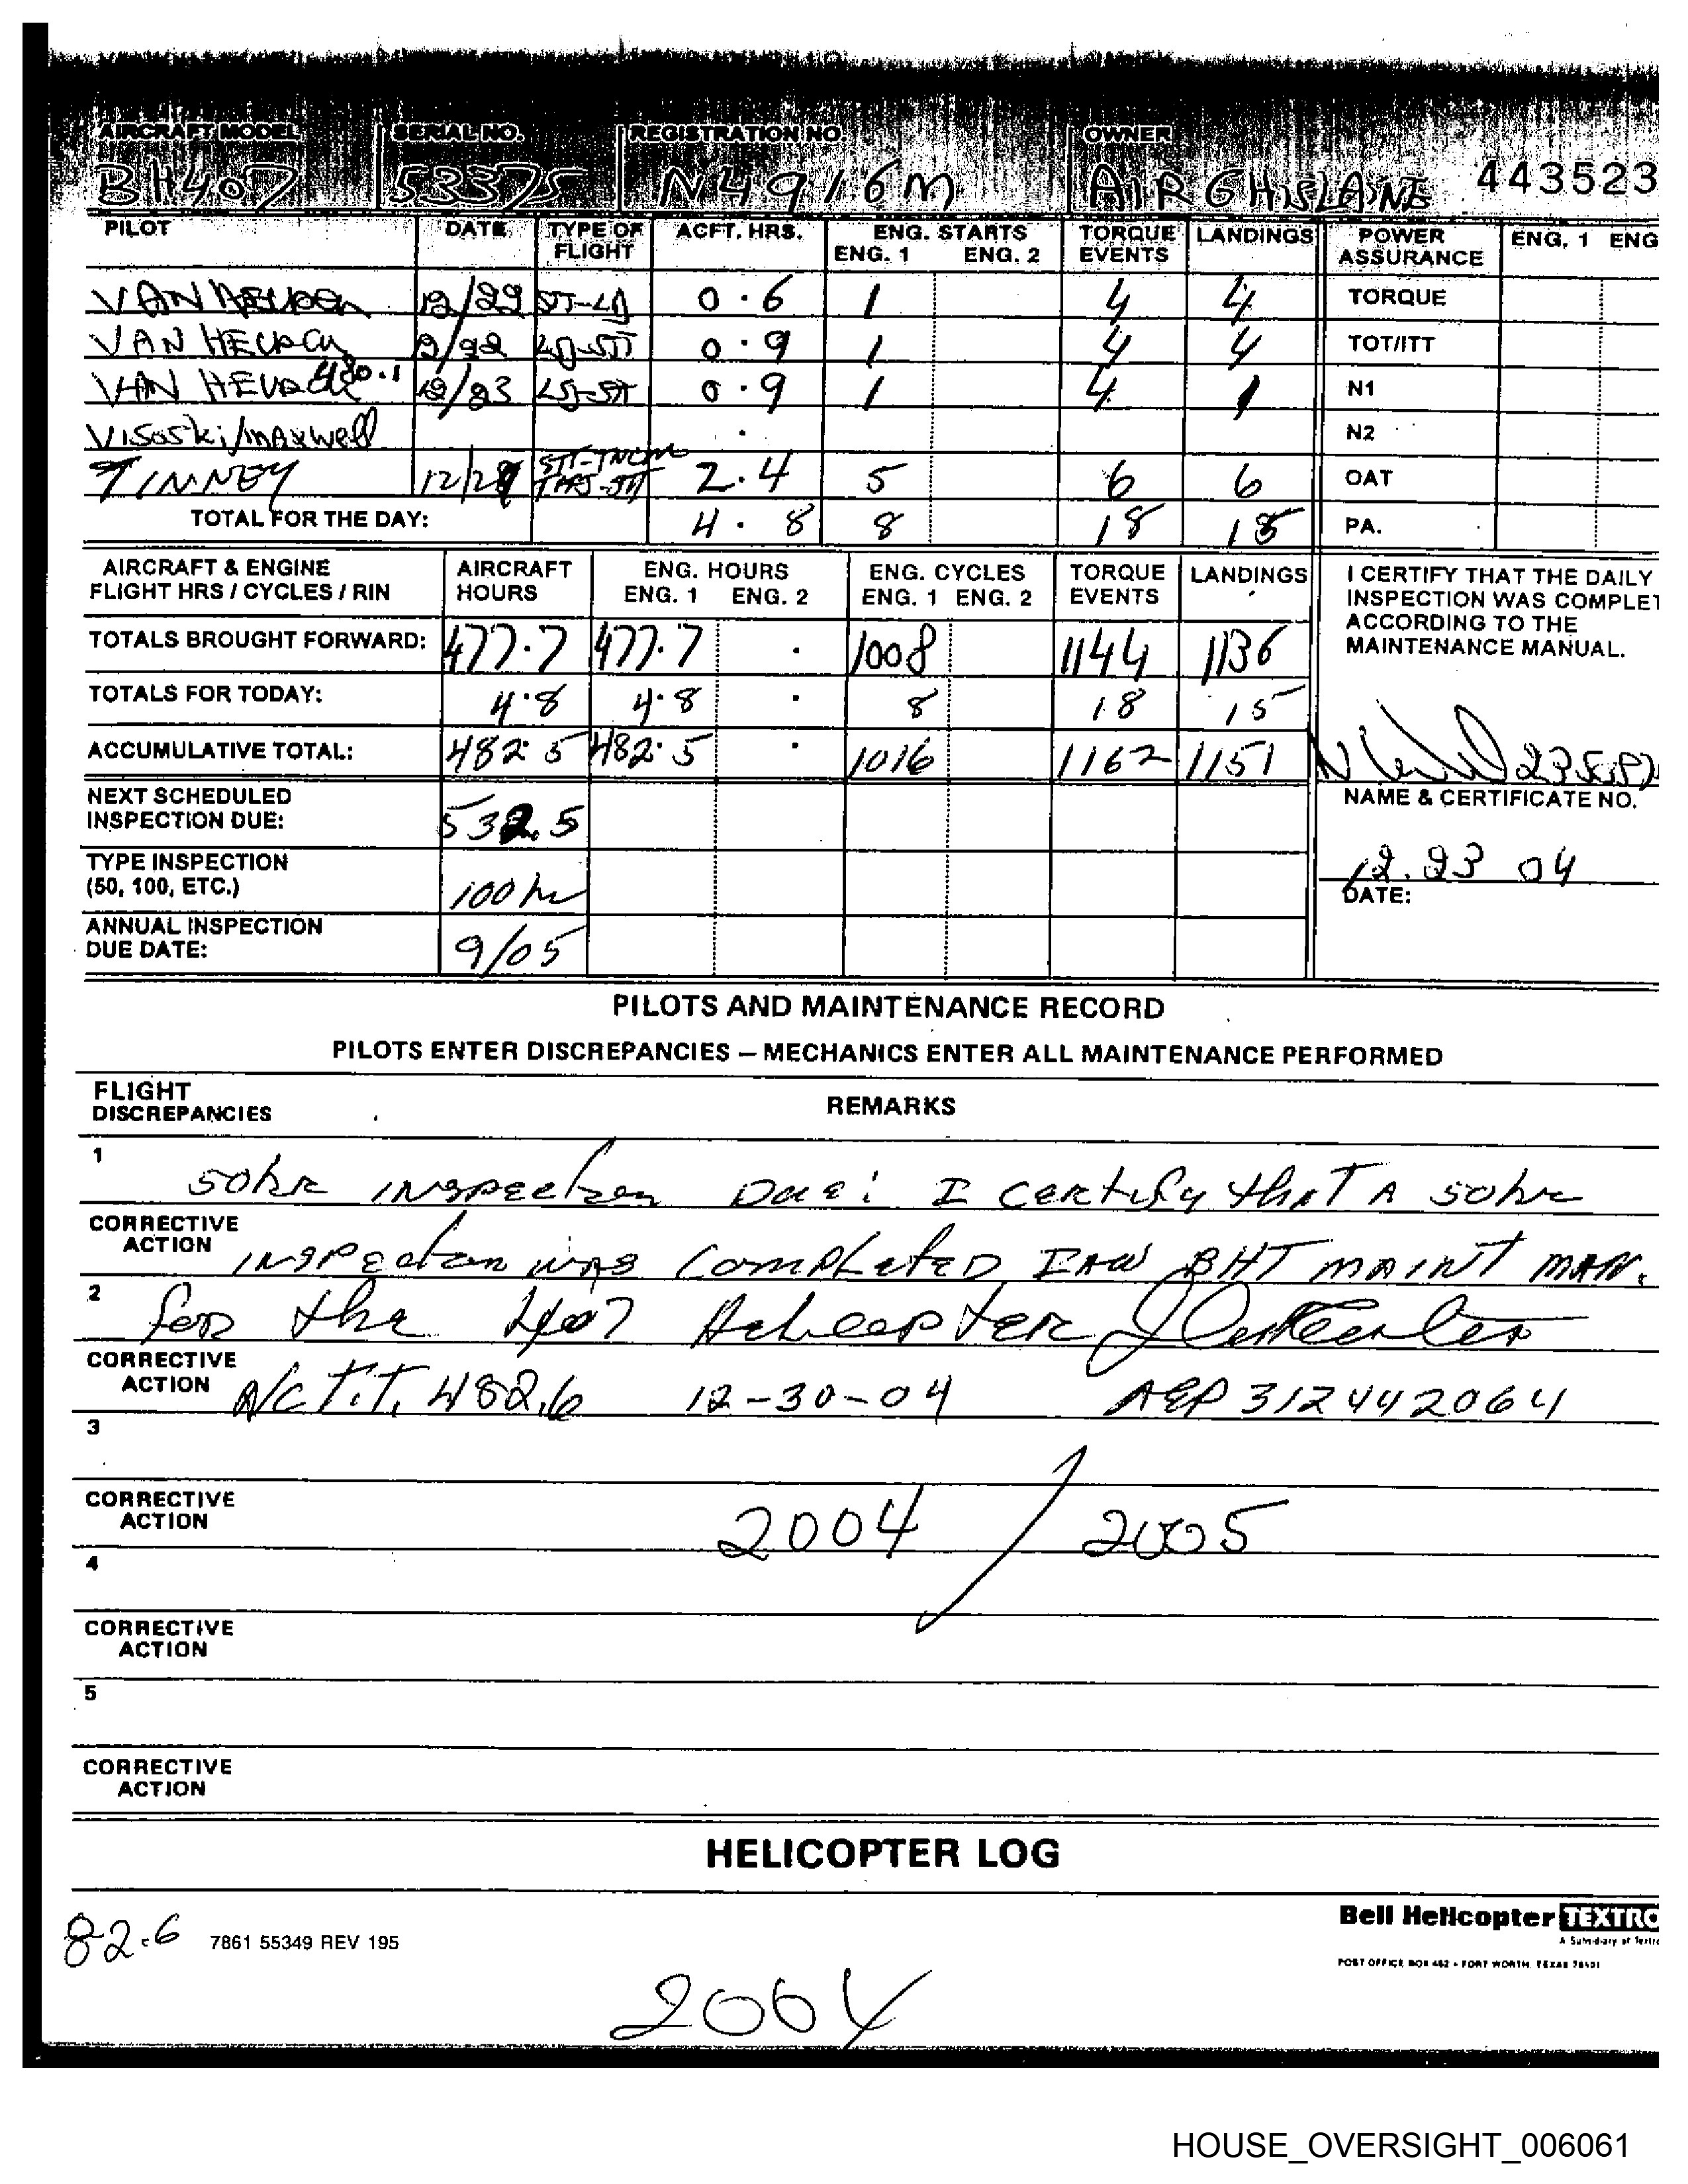 AIRCRAFT MODEL SERIAL NO. REGISTRATION NO. OWNER
BH407 53375 N4916M AIR GHISLAINE 443523
PILOT DATE TYPE OF FLIGHT ACFT. HRS. ENG. STARTS ENG. 1 ENG. 2 TORQUE EVENTS LANDINGS POWER ASSURANCE ENG. 1 ENG
VAN 0.6 1 4 4 TORQUE
VAN 0.9 1 4 4 TOT/ITT
VAN 480.1 12/23 0.9 1 4 1 N1
Visoski/maxwell . N2
TINNEY 2.4 5 6 6 OAT
TOTAL FOR THE DAY: 4.8 8 18 15 PA.
AIRCRAFT & ENGINE FLIGHT HRS / CYCLES / RIN AIRCRAFT HOURS ENG. HOURS ENG. 1 ENG. 2 ENG. CYCLES ENG. 1 ENG. 2 TORQUE EVENTS LANDINGS
I CERTIFY THAT THE DAILY
INSPECTION WAS COMPLET
ACCORDING TO THE
MAINTENANCE MANUAL.
TOTALS BROUGHT FORWARD: 477.7 477.7 . 1008 1144 1136
TOTALS FOR TODAY: 4.8 4.8 . 8 18 15
ACCUMULATIVE TOTAL: 482.5 482.5 . 1016 1162 1151
NAME & CERTIFICATE NO.
NEXT SCHEDULED INSPECTION DUE: 532.5
TYPE INSPECTION (50, 100, ETC.) 100 hr
12.23 04
DATE:
ANNUAL INSPECTION DUE DATE: 9/05
PILOTS AND MAINTENANCE RECORD
PILOTS ENTER DISCREPANCIES – MECHANICS ENTER ALL MAINTENANCE PERFORMED
FLIGHT DISCREPANCIES REMARKS
1 50hr inspection Due: I certify that A 50hr
CORRECTIVE ACTION inspection was completed IAW BHT MAINT MAN.
2 for the 407 Helicopter
CORRECTIVE ACTION A/C T.T. 482.6 12-30-04 A&P 312442064
3
CORRECTIVE ACTION 2004 / 2005
4
CORRECTIVE ACTION
5
CORRECTIVE ACTION
HELICOPTER LOG
82.6 7861 55349 REV 195
Bell Helicopter TEXTRO
A Subsidiary of Textro
POST OFFICE BOX 482 • FORT WORTH, TEXAS 76101
2004
HOUSE_OVERSIGHT_006061